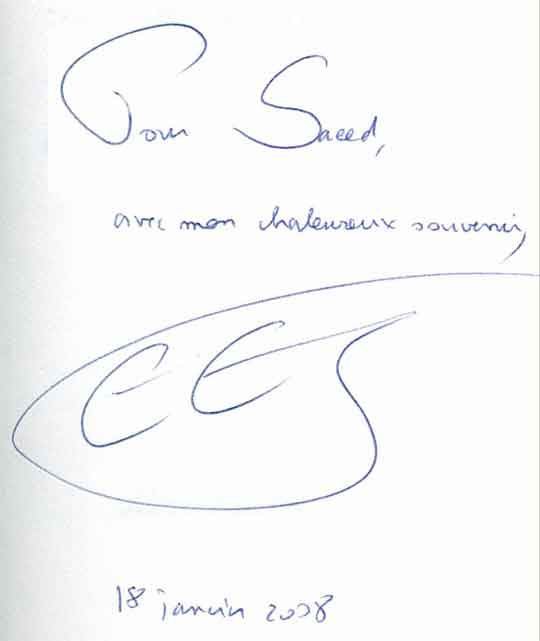 Pour Saeed,
avec mon chaleureux souvenir,
EES
18 janvier 2008